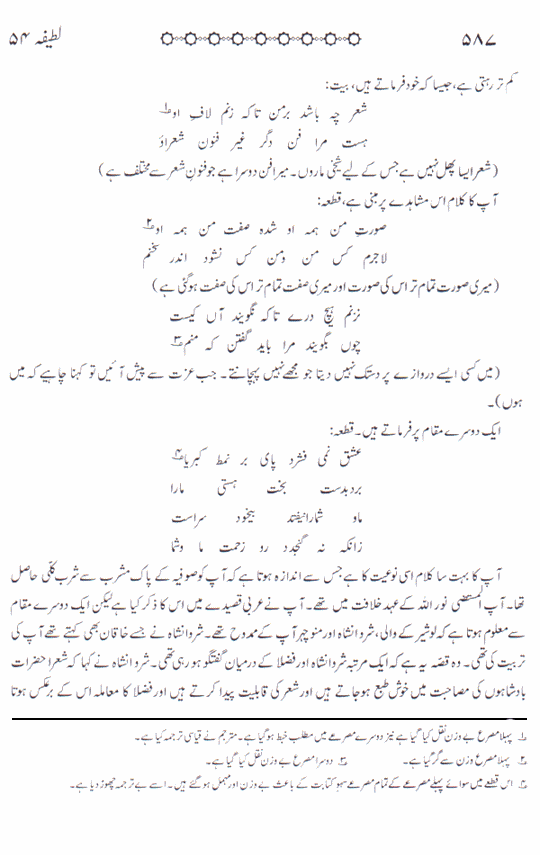 ۵۸۷ لطیفہ ۵۴
کم تر رہتی ہے، جیسا کہ خود فرماتے ہیں، بیت:
شعر چہ باشد برمن تا کہ زنم لافِ او ۱
ہست مرا فن دگر غیر فنون شعراؤ
(شعر ایسا پھل نہیں ہے جس کے لیے شیخی ماروں۔ میرا فن دوسرا ہے جو فنونِ شعر سے مختلف ہے)
آپ کا کلام اس مشاہدے پر مبنی ہے، قطعہ:
صورتِ من ہمہ او شدہ صفت من ہمہ او ۲
لاجرم کس من ومن کس نشود اندر سخنم
(میری صورت تمام تر اس کی صورت اور میری صفت تمام تر اس کی صفت ہوگئی ہے)
نزنم ہیچ درے تا کہ نگویند آں کیست
چوں بگویند مرا باید گفتن کہ منم ۳
(میں کسی ایسے دروازے پر دستک نہیں دیتا جو مجھے نہیں پہچانتے۔ جب عزت سے پیش آئیں تو کہنا چاہیے کہ میں
ہوں)۔
ایک دوسرے مقام پر فرماتے ہیں۔ قطعہ:
عشق نمی فشرد پای بر نمط کبریا ۴
بردبدست بخت ہستی مارا
ماو شمارانیفتد بیخود سراست
زانکہ نہ گنجدد رو زحمت ما وشما
آپ کا بہت سا کلام اسی نوعیت کا ہے جس سے اندازہ ہوتا ہے کہ آپ کو صوفیہ کے پاک مشرب سے شرب کلّی حاصل
تھا۔ آپ المستضی نور اللہ کے عہد خلافت میں تھے۔ آپ نے عربی قصیدے میں اس کا ذکر کیا ہے لیکن ایک دوسرے مقام
سے معلوم ہوتا ہے کہ لوشیر کے والی، شروانشاہ اور منوچہر آپ کے ممدوح تھے۔ شروانشاہ نے جسے خاقان بھی کہتے تھے آپ کی
تربیت کی تھی۔ وہ قصہ یہ ہے کہ ایک مرتبہ شروانشاہ اور فضلا کے درمیان گفتگو ہو رہی تھی۔ شروانشاہ نے کہا کہ شعرا حضرات
بادشاہوں کی مصاحبت میں خوش طبع ہوجاتے ہیں اور شعر کی قابلیت پیدا کرتے ہیں اور فضلا کا معاملہ اس کے برعکس ہوتا
۱ پہلا مصرع بے وزن نقل کیا گیا ہے نیز دوسرے مصرعے میں مطلب خبط ہوگیا ہے۔ مترجم نے قیاسی ترجمہ کیا ہے۔
۲ پہلا مصرع وزن سے گر گیا ہے۔ ۳ دوسرا مصرع بے وزن نقل کیا گیا ہے۔
۴ اس قطعے میں سوائے پہلے مصرعے کے تمام مصرعے سہو کتابت کے باعث بے وزن اور مہمل ہوگئے ہیں۔ اسے بے ترجمہ چھوڑ دیا ہے۔